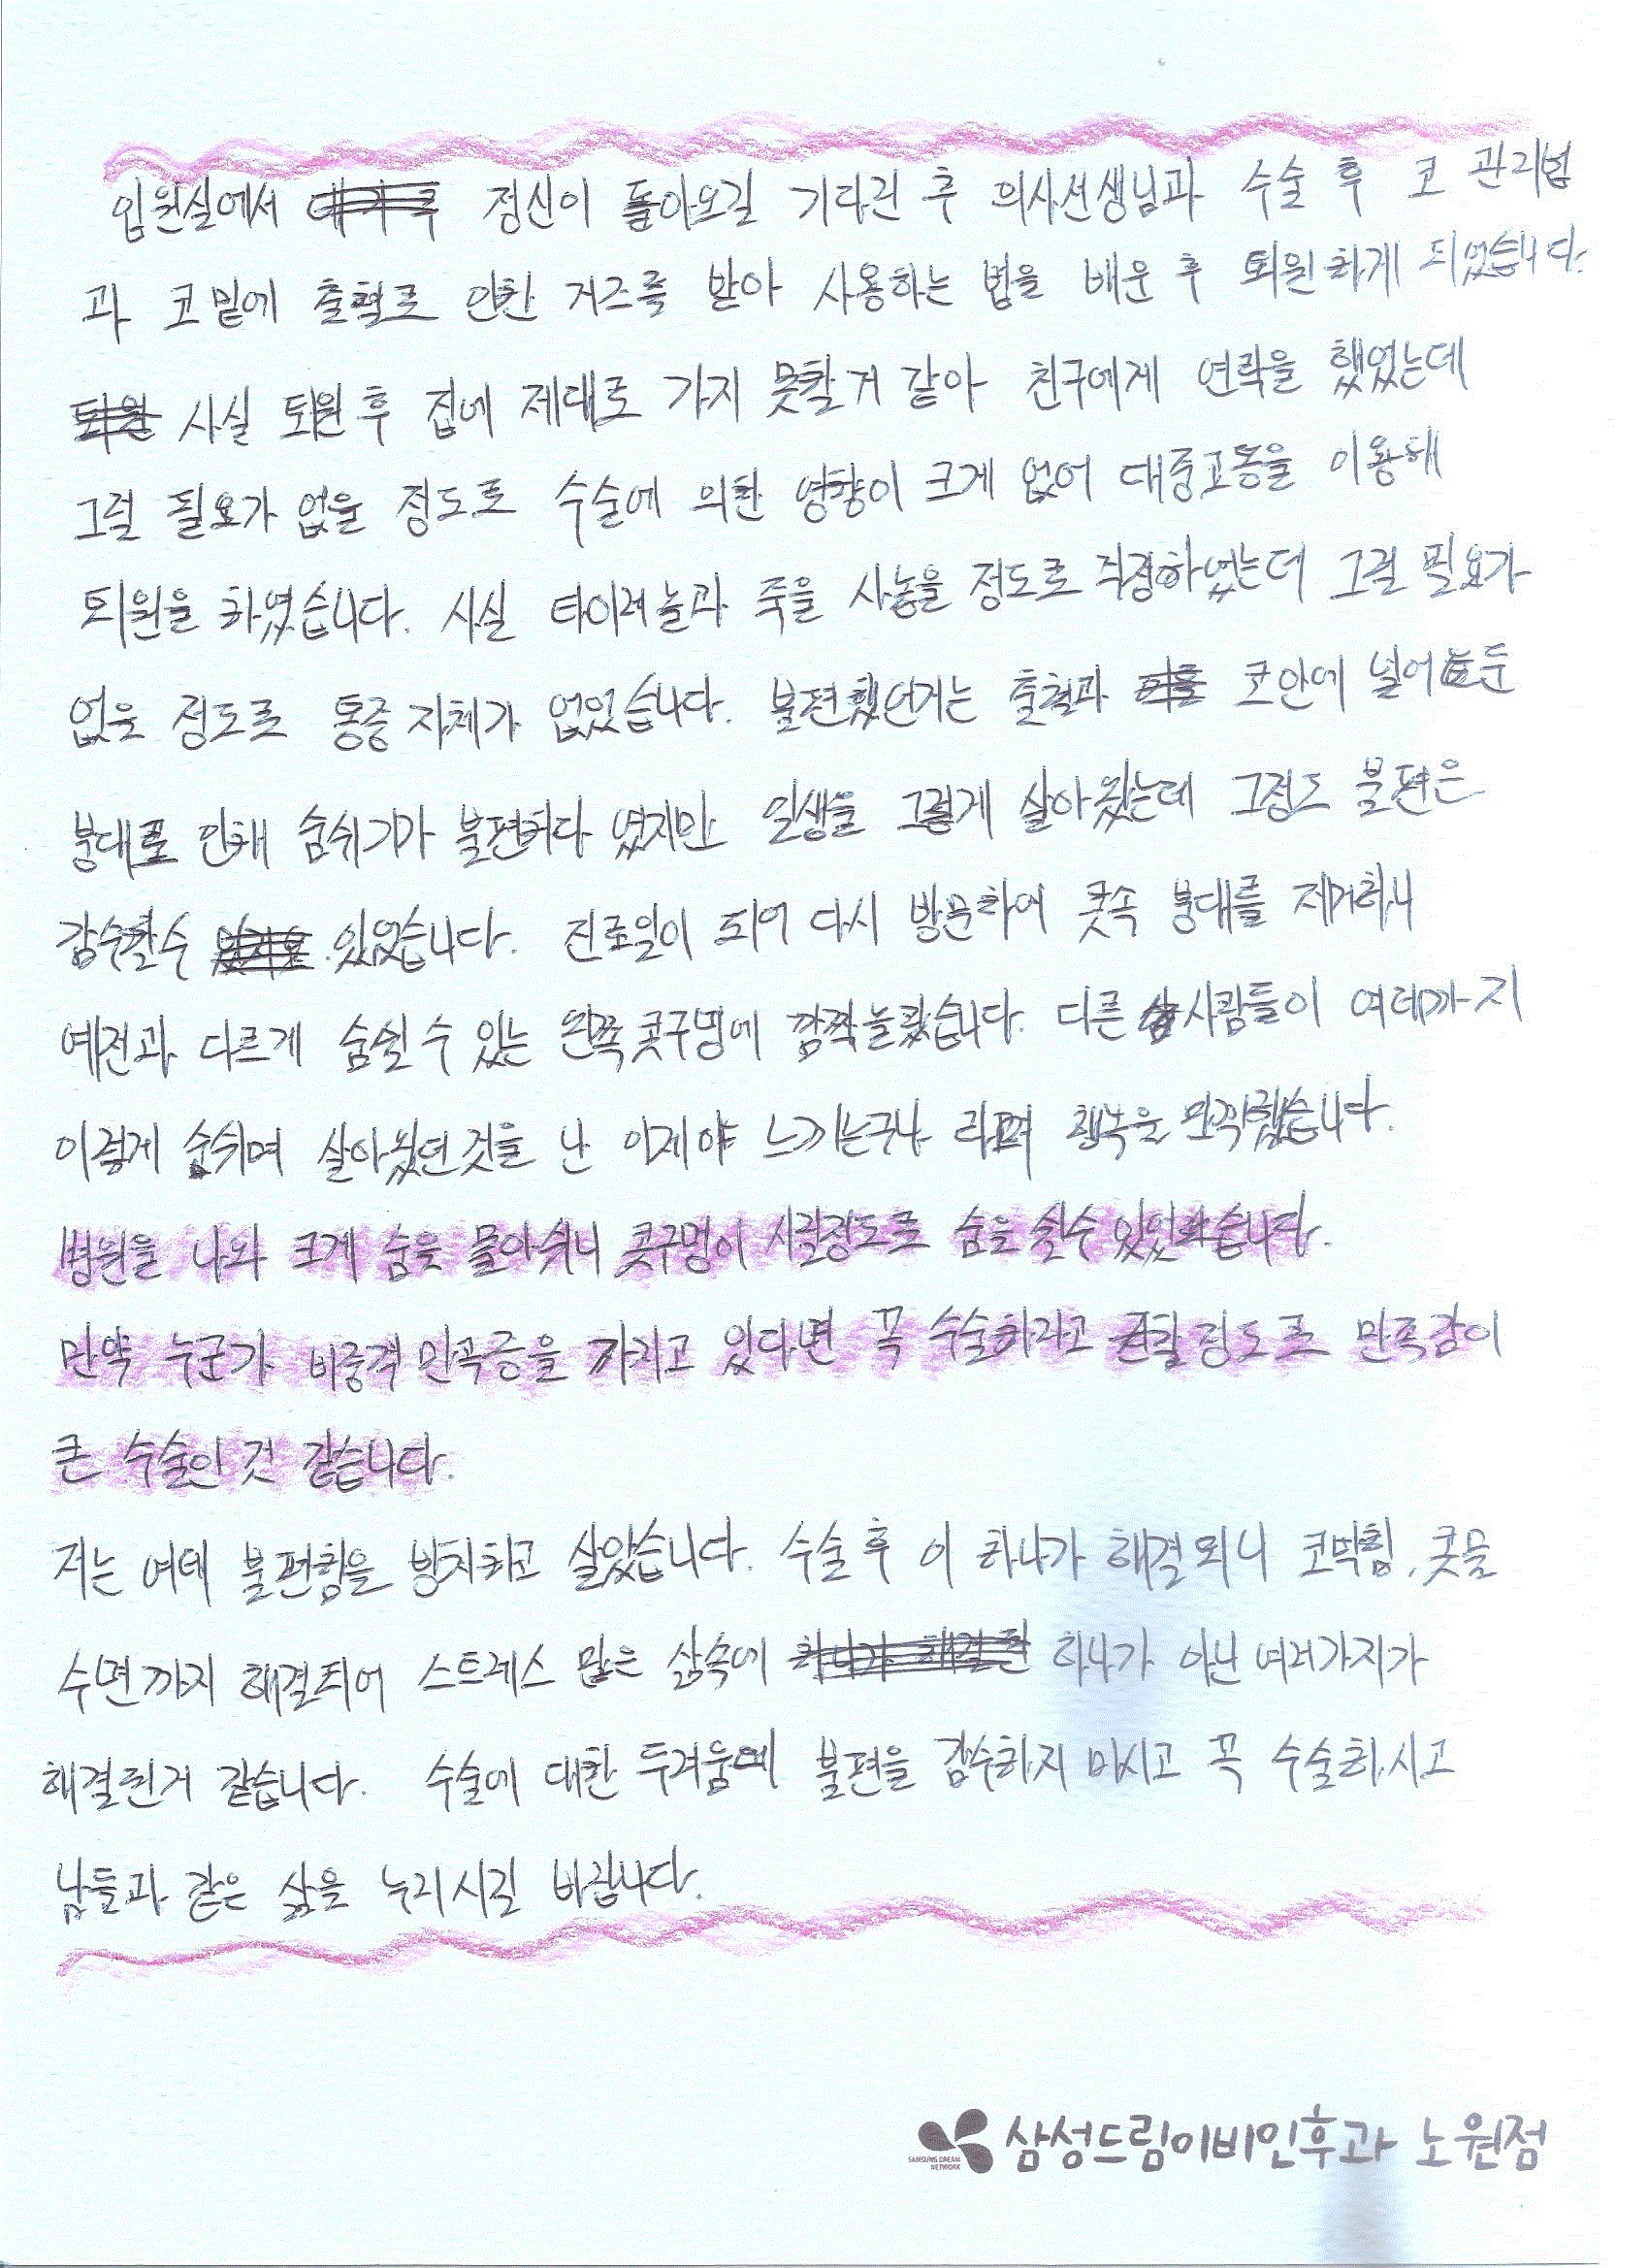 입원실에서 정신이 돌아오길 기다린 후 의사선생님과 수술 후 코 관리법
과 코밑에 출혈로 인한 거즈를 받아 사용하는 법을 배운 후 퇴원하게 되었습니다.
퇴원 사실 퇴원 후 집에 제대로 가지 못할거 같아 친구에게 연락을 했었는데
그럴 필요가 없을 정도로 수술에 의한 영향이 크게 없어 대중교통을 이용해
퇴원을 하였습니다. 사실 타이레놀과 죽을 사놓을 정도로 걱정하였는데 그럴 필요가
없을 정도로 통증 자체가 없었습니다. 불편했던거는 출혈과 코안에 넣어둔
붕대로 인해 숨쉬기가 불편하다 였지만 일생을 그렇게 살아왔는데 그정도 불편은
감수할수 있었습니다. 진료일이 되어 다시 방문하여 콧속 붕대를 제거하니
예전과 다르게 숨쉴 수 있는 왼쪽 콧구멍에 깜짝 놀랐습니다. 다른 사람들이 여태까지
이렇게 숨쉬며 살아왔던것을 난 이제야 느끼는구나 라며 행복을 만끽했습니다.
병원을 나와 크게 숨을 몰아쉬니 콧구멍이 시릴정도로 숨을 쉴수 있었습니다.
만약 누군가 비중격 만곡증을 가지고 있다면 꼭 수술하라고 권할 정도로 만족감이
큰 수술인 것 같습니다.
저는 여태 불편함을 방치하고 살았습니다. 수술 후 이 하나가 해결되니 코막힘, 콧물
수면까지 해결되어 스트레스 많은 삶속에 하나가 해결된 하나가 아닌 여러가지가
해결된거 같습니다. 수술에 대한 두려움에 불편을 감수하지 마시고 꼭 수술하시고
남들과 같은 삶을 누리시길 바랍니다.
SAMSUNG DREAM NETWORK 삼성드림이비인후과 노원점